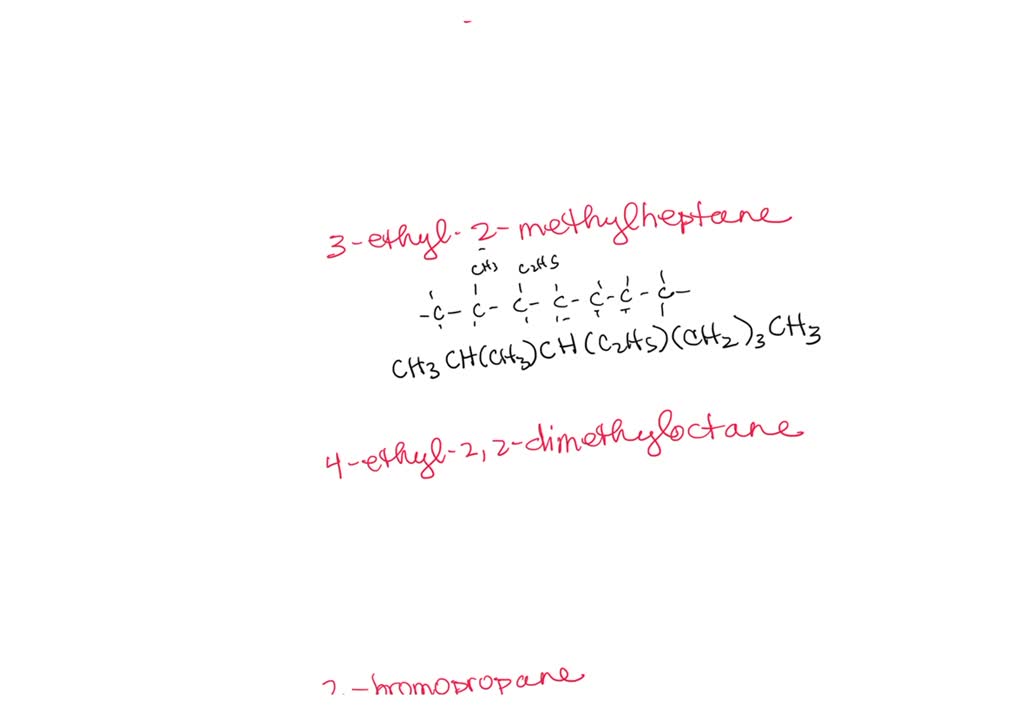 3-ethyl-2-methylheptane
CH3 C2H5
-C-C-C-C-C-C-C-
CH3CH(CH3)CH(C2H5)(CH2)3CH3
4-ethyl-2,2-dimethyloctane
2-bromopropane